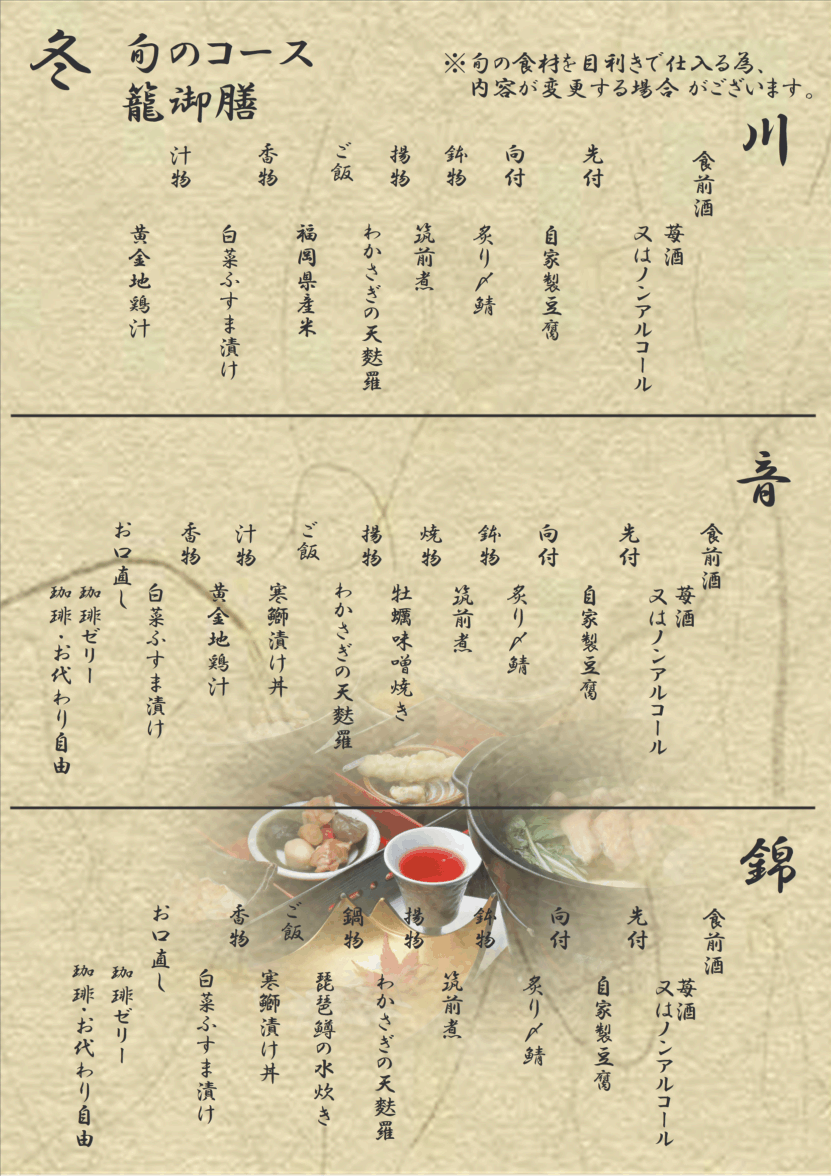 冬
旬のコース
籠御膳
※旬の食材を目利きで仕入る為、
内容が変更する場合 がございます。
川
食前酒
苺酒
又はノンアルコール
先付
自家製豆腐
向付
炙り〆鯖
鉢物
筑前煮
揚物
わかさぎの天麩羅
ご飯
福岡県産米
香物
白菜ふすま漬け
汁物
黄金地鶏汁
音
食前酒
苺酒
又はノンアルコール
先付
自家製豆腐
向付
炙り〆鯖
鉢物
筑前煮
焼物
牡蠣味噌焼き
揚物
わかさぎの天麩羅
ご飯
寒鰤漬け丼
汁物
黄金地鶏汁
香物
白菜ふすま漬け
お口直し
珈琲ゼリー
珈琲・お代わり自由
錦
食前酒
苺酒
又はノンアルコール
先付
自家製豆腐
向付
炙り〆鯖
鉢物
筑前煮
揚物
わかさぎの天麩羅
鍋物
琵琶鱒の水炊き
ご飯
寒鰤漬け丼
香物
白菜ふすま漬け
お口直し
珈琲ゼリー
珈琲・お代わり自由